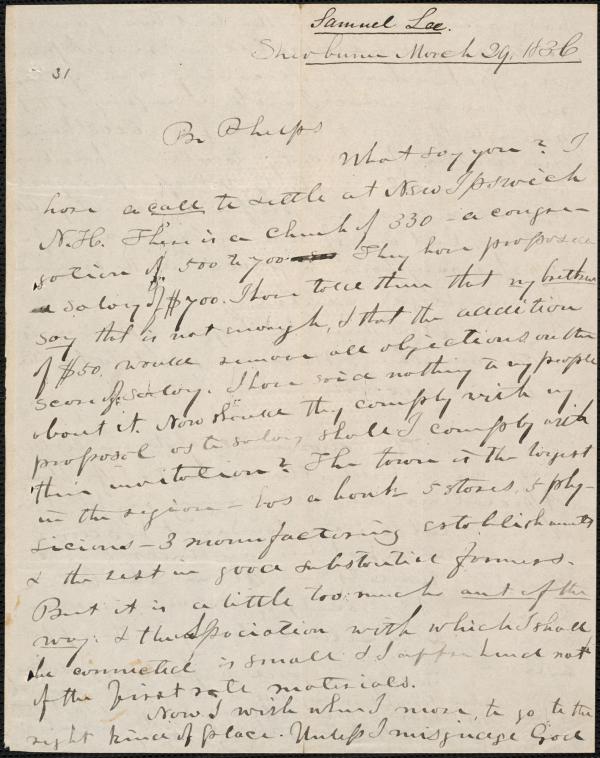 Samuel Lee.
Sherburne March 29, 1836
31
Br Phelps
What say you? I
have a call to settle at New Ipswich
N.H. There is a church of 330 - a congre-
gation of 500 to 700. They have proposed
a salary of $700. I have told them that my brethren
say that is not enough, & that the addition
of $50, would remove all objections on the
score of salary. I have said nothing to my people
about it. Now should they comply with my
proposal as to salary shall I comply with
their invitation? The town is the largest
in the region - has a bank 5 stores, 5 phy-
sicians - 3 manufacturing establishments
& the rest in good substantial farmers.
But it is a little too much out of the
way: & the Association with which I shall
be connected is small & I apprehend not
of the first rate materials.
Now I wish when I move, to go to the
right kind of place. Unless I misjudge God